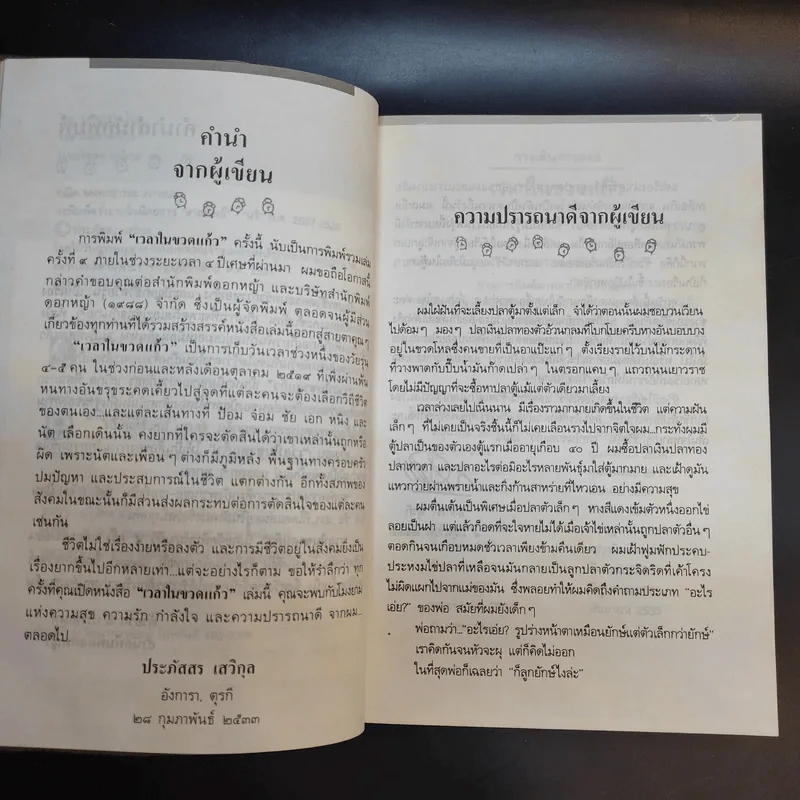 คำนำ
จากผู้เขียน
การพิมพ์ “เวลาในขวดแก้ว” ครั้งนี้ นับเป็นการพิมพ์รวมเล่ม
ครั้งที่ ๙ ภายในช่วงระยะเวลา ๔ ปีเศษที่ผ่านมา ผมขอถือโอกาสนี้
กล่าวคำขอบคุณต่อสำนักพิมพ์ดอกหญ้า และบริษัทสำนักพิมพ์
ดอกหญ้า (๑๙๘๘) จำกัด ซึ่งเป็นผู้จัดพิมพ์ ตลอดจนผู้มีส่วน
เกี่ยวข้องทุกท่านที่ได้รวมสร้างสรรค์หนังสือเล่มนี้ออกสู่สายตาคุณๆ
“เวลาในขวดแก้ว” เป็นการเก็บวันเวลาช่วงหนึ่งของวัยรุ่น
๔-๕ คน ในช่วงก่อนและหลังเดือนตุลาคม ๒๕๑๙ ที่เพิ่งผ่านพ้น
หนทางอันขรุขระคดเคี้ยวไปสู่จุดที่แต่ละคนจะต้องเลือกวิถีชีวิต
ของตนเอง...และแต่ละเส้นทางที่ ป้อม จ๋อม ชัย เอก หนิง และ
นัต เลือกเดินนั้น คงยากที่ใครจะตัดสินได้ว่าเขาเหล่านั้นถูกหรือ
ผิด เพราะนัตและเพื่อนๆ ต่างก็มีภูมิหลัง พื้นฐานทางครอบครัว
ปมปัญหา และประสบการณ์ในชีวิต แตกต่างกัน อีกทั้งสภาพของ
สังคมในขณะนั้นก็มีส่วนส่งผลกระทบต่อการตัดสินใจของแต่ละคน
เช่นกัน
ชีวิตไม่ใช่เรื่องง่ายหรือลงตัว และการมีชีวิตอยู่ในสังคมยิ่งเป็น
เรื่องยากขึ้นไปอีกหลายเท่า...แต่จะอย่างไรก็ตาม ขอให้รำลึกว่า ทุก
ครั้งที่คุณเปิดหนังสือ “เวลาในขวดแก้ว” เล่มนี้ คุณจะพบกับโมงยาม
แห่งความสุข ความรัก กำลังใจ และความปรารถนาดี จากผม...
ตลอดไป.
ประภัสสร เสวิกุล
อังการา, ตุรกี
๒๘ กุมภาพันธ์ ๒๕๓๓
ความปรารถนาดีจากผู้เขียน
ผมใฝ่ฝันที่จะเลี้ยงปลาตู้มาตั้งแต่เล็ก จำได้ว่าตอนนั้นผมชอบวนเวียน
ไปด้อมๆ มองๆ ปลาเงินปลาทองตัวอ้วนกลมที่โบกโบยครีบหางอันบอบบาง
อยู่ในขวดโหลซึ่งคนขายที่เป็นอาแป๊ะแก่ๆ ตั้งเรียงรายไว้บนไม้กระดาน
ที่วางพาดกับปี๊บน้ำมันก๊าดเปล่าๆ ในตรอกแคบๆ แถวถนนเยาวราช
โดยไม่มีปัญญาที่จะซื้อหาปลาตู้แม้แต่ตัวเดียวมาเลี้ยง
เวลาล่วงเลยไปเนิ่นนาน มีเรื่องราวมากมายเกิดขึ้นในชีวิต แต่ความฝัน
เล็กๆ ที่ไม่เคยเป็นจริงชิ้นนี้ก็ไม่เคยเลือนรางไปจากจิตใจผม...กระทั่งผมมี
ตู้ปลาเป็นของตัวเองตู้แรกเมื่ออายุเกือบ ๔๐ ปี ผมซื้อปลาเงินปลาทอง
ปลาเทวดา และปลาอะไรต่อมิอะไรหลายพันธุ์มาใส่ตู้มากมาย และเฝ้าดูมัน
แหวกว่ายผ่านพรายน้ำและกิ่งก้านสาหร่ายที่ไหวเอน อย่างมีความสุข
ผมตื่นเต้นเป็นพิเศษเมื่อปลาตัวเล็กๆ หางสีแดงเข้มตัวหนึ่งออกไข่
ลอยเป็นฝา แต่แล้วก็อดที่จะใจหายไม่ได้เมื่อเจ้าไข่เหล่านั้นถูกปลาตัวอื่นๆ
ตอดกินจนเกือบหมดชั่วเวลาเพียงข้ามคืนเดียว ผมเฝ้าฟูมฟักประคบ-
ประหงมไข่ปลาที่เหลือจนมันกลายเป็นลูกปลาตัวกระจิดริดที่เค้าโครง
ไม่ผิดแผกไปจากแม่ของมัน ซึ่งพลอยทำให้ผมคิดถึงคำถามประเภท “อะไร
เอ่ย?” ของพ่อ สมัยที่ผมยังเด็กๆ
พ่อถามว่า...“อะไรเอ่ย? รูปร่างหน้าตาเหมือนยักษ์แต่ตัวเล็กกว่ายักษ์”
เราคิดกันจนหัวจะผุ แต่ก็คิดไม่ออก
ในที่สุดพ่อก็เฉลยว่า “ก็ลูกยักษ์ไงล่ะ”